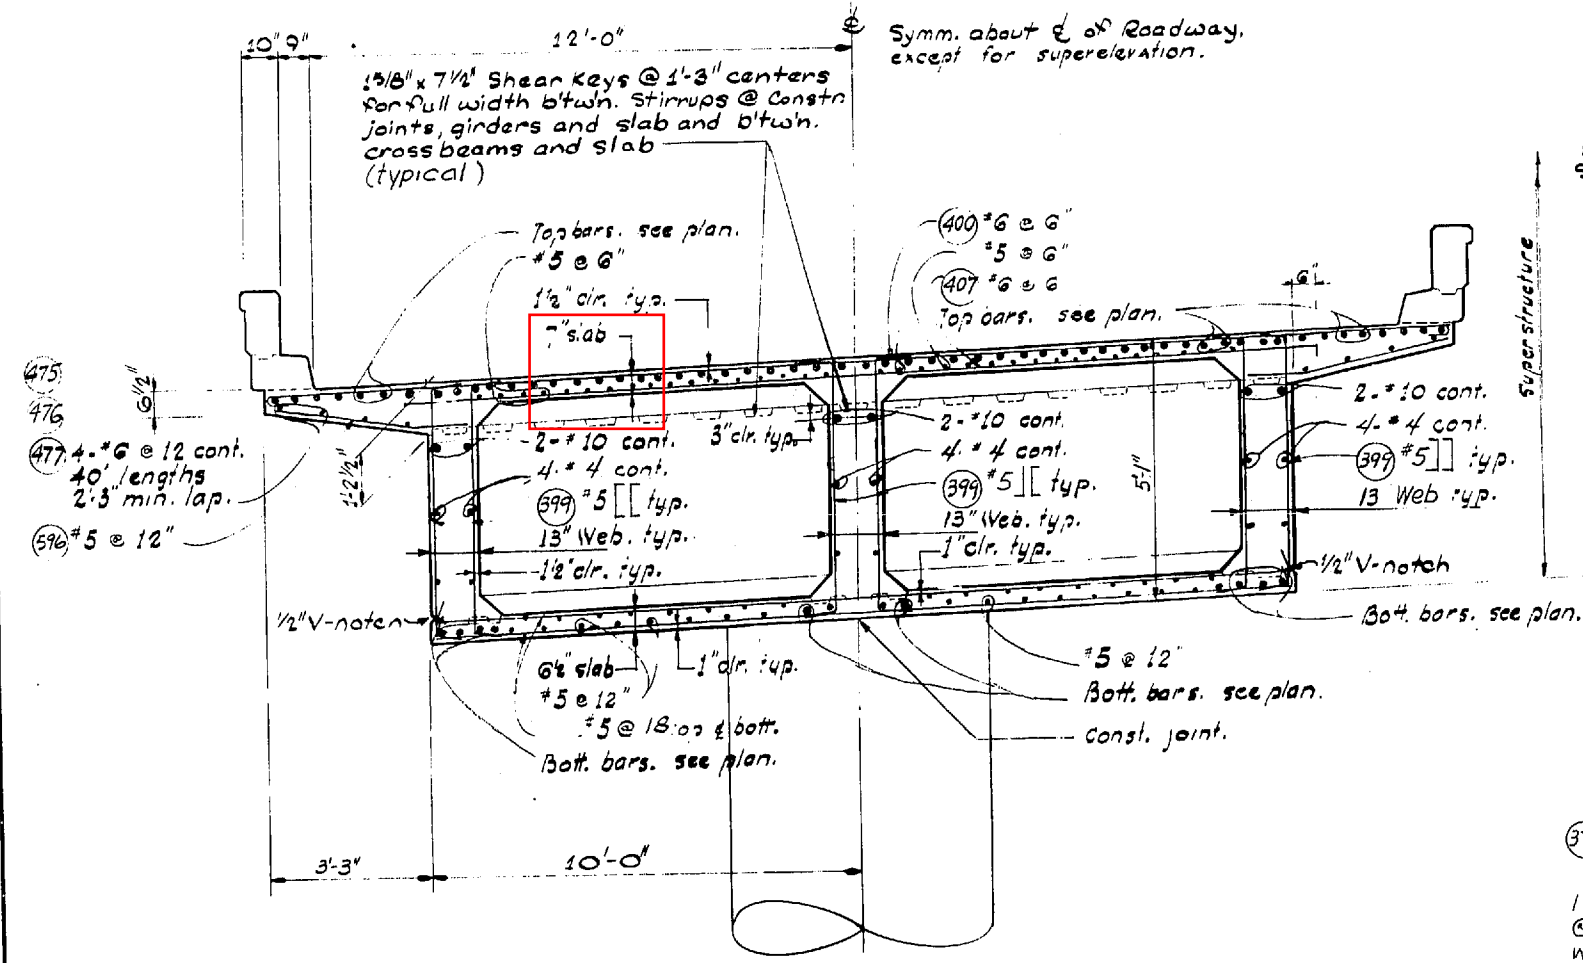 10" 9"
12'-0"
℄
Symm. about ℄ of Roadway,
except for superelevation.
1 5/8" x 7 1/2" Shear Keys @ 1'-3" centers
for full width b'tw'n. Stirrups @ Constr
joints, girders and slab and b'tw'n.
cross beams and slab
(typical)
Top bars. see plan.
#5 @ 6"
1 1/2" clr. typ.
7" slab
400 #6 @ 6"
#5 @ 6"
407 #6 @ 6
Top bars. see plan.
6"
Superstructure
475
476
477 4-#6 @ 12 cont.
40' lengths
2'-3" min. lap.
596 #5 @ 12"
2-#10 cont.
4-#4 cont.
399 #5 [[ typ.
13" Web. typ.
1 1/2" clr. typ.
3" clr. typ.
2-#10 cont.
4-#4 cont.
399 #5 ][ typ.
13" Web. typ.
1" clr. typ.
5'-1"
2-#10 cont.
4-#4 cont.
399 #5 ]] typ.
13 Web typ.
1/2" V-notch
1/2" V-notch
Bott. bars. see plan.
6 1/2" slab
1" clr. typ.
#5 @ 12"
#5 @ 18 top & bott.
Bott. bars. see plan.
#5 @ 12"
Bott. bars. see plan.
Const. joint.
3'-3"
10'-0"